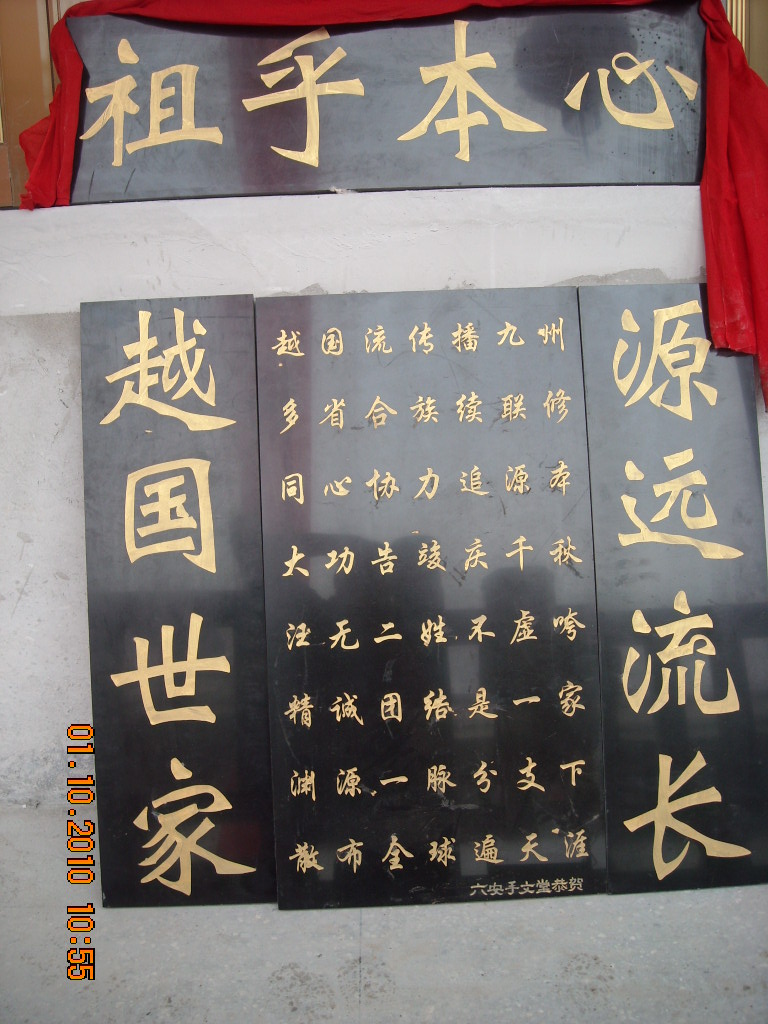 心本乎祖
越国世家
越国流传播九州
多省合族续联修
同心协力追源本
大功告竣庆千秋
汪无二姓不虚夸
精诚团结是一家
渊源一脉分支下
散布全球遍天涯
六安手文堂恭贺
源远流长
01.10.2010 10:55